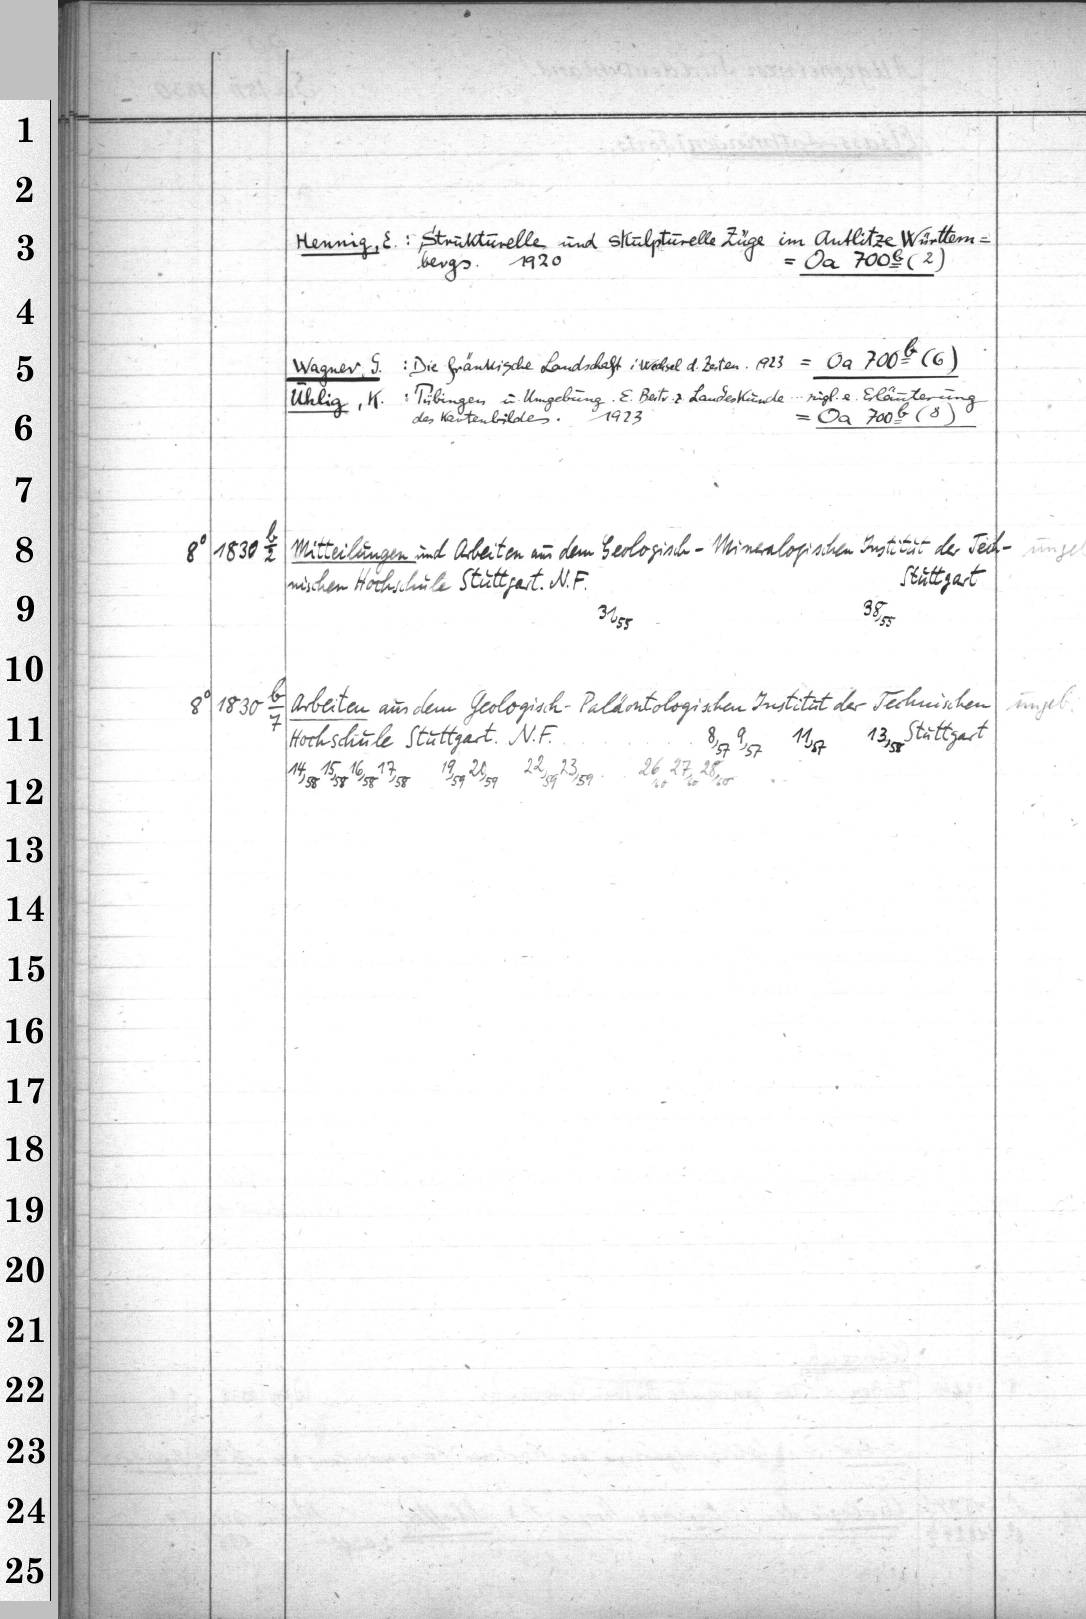 1
2
3
4
5
6
7
8
9
10
11
12
13
14
15
16
17
18
19
20
21
22
23
24
25
Hennig, E. : Strukturelle und skulpturelle Züge im Antlitze Württem=
bergs. 1920 = Oa 700 b (2)
Wagner, G. : Die fränkische Landschaft i Wechsel d. Zeiten. 1923 = Oa 700 b (6)
Uhlig, K. : Tübingen u. Umgebung. E. Beitr. z Landeskunde zugl. e. Erläuterung
des Kartenbildes. 1923 = Oa 700 b (8)
8° 1830 b/2 Mitteilungen und Arbeiten aus dem Geologisch-Mineralogischen Institut der Tech-
nischen Hochschule Stuttgart. N.F. Stuttgart
31/55 38/55
8° 1830 b/7 Arbeiten aus dem Geologisch-Paläontologischen Institut der Technischen ungeb.
Hochschule Stuttgart. N.F. 8/57 9/57 11/57 13/58 Stuttgart
14/58 15/58 16/58 17/58 19/59 20/59 22/59 23/59 26/60 27/60 28/60